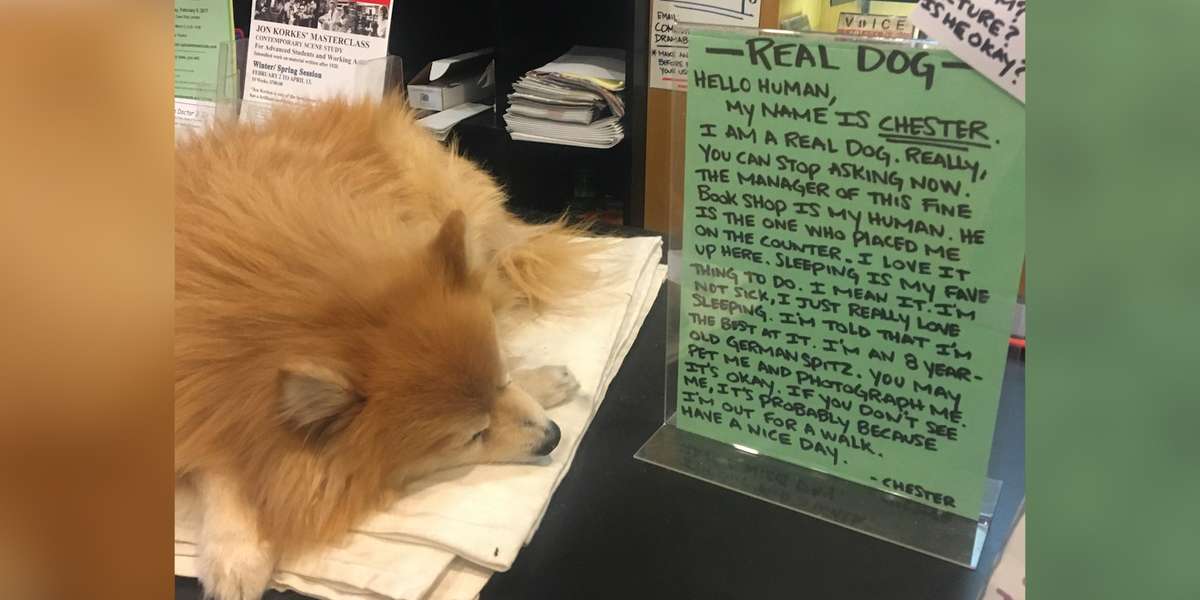 JON KORKES' MASTERCLASS
CONTEMPORARY SCENE STUDY
For Advanced Students and Working
Winter/ Spring Session
FEBRUARY 2 TO APRIL 13
EMAIL
VOICE
IS HE OKAY?
—REAL DOG—
HELLO HUMAN,
MY NAME IS CHESTER.
I AM A REAL DOG. REALLY,
YOU CAN STOP ASKING NOW.
THE MANAGER OF THIS FINE
BOOK SHOP IS MY HUMAN. HE
IS THE ONE WHO PLACED ME
ON THE COUNTER. I LOVE IT
UP HERE. SLEEPING IS MY FAVE
THING TO DO. I MEAN IT. I'M
NOT SICK, I JUST REALLY LOVE
SLEEPING. I'M TOLD THAT I'M
THE BEST AT IT. I'M AN 8 YEAR-
OLD GERMAN SPITZ. YOU MAY
PET ME AND PHOTOGRAPH ME.
IT'S OKAY. IF YOU DON'T SEE
ME, IT'S PROBABLY BECAUSE
I'M OUT FOR A WALK.
HAVE A NICE DAY.
- CHESTER